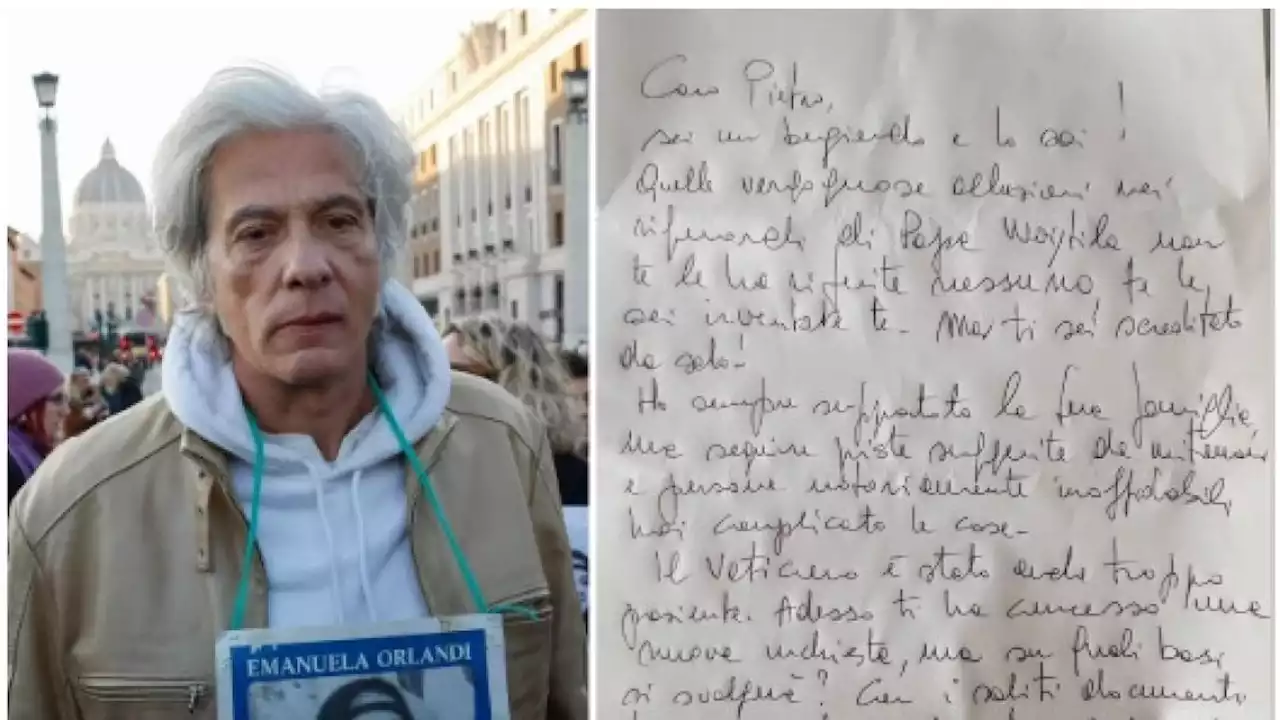 EMANUELA ORLANDI
Caro Pietro,
sei un bugiardo e lo sai!
Quelle vergognose allusioni nei
riguardi di Papa Wojtila non
te le ha riferite nessuno, te le
sei inventate te. Ma ti sei screditato
da solo!
Ho sempre supportato la tua famiglia,
ma seguire piste suggerite da mitomani
e persone notoriamente inaffidabili
hai complicato le cose.
Il Vaticano è stato anche troppo
paziente. Adesso ti ha concesso una
nuova inchiesta, ma su quali basi
si svolgerà? Con i soliti documenti